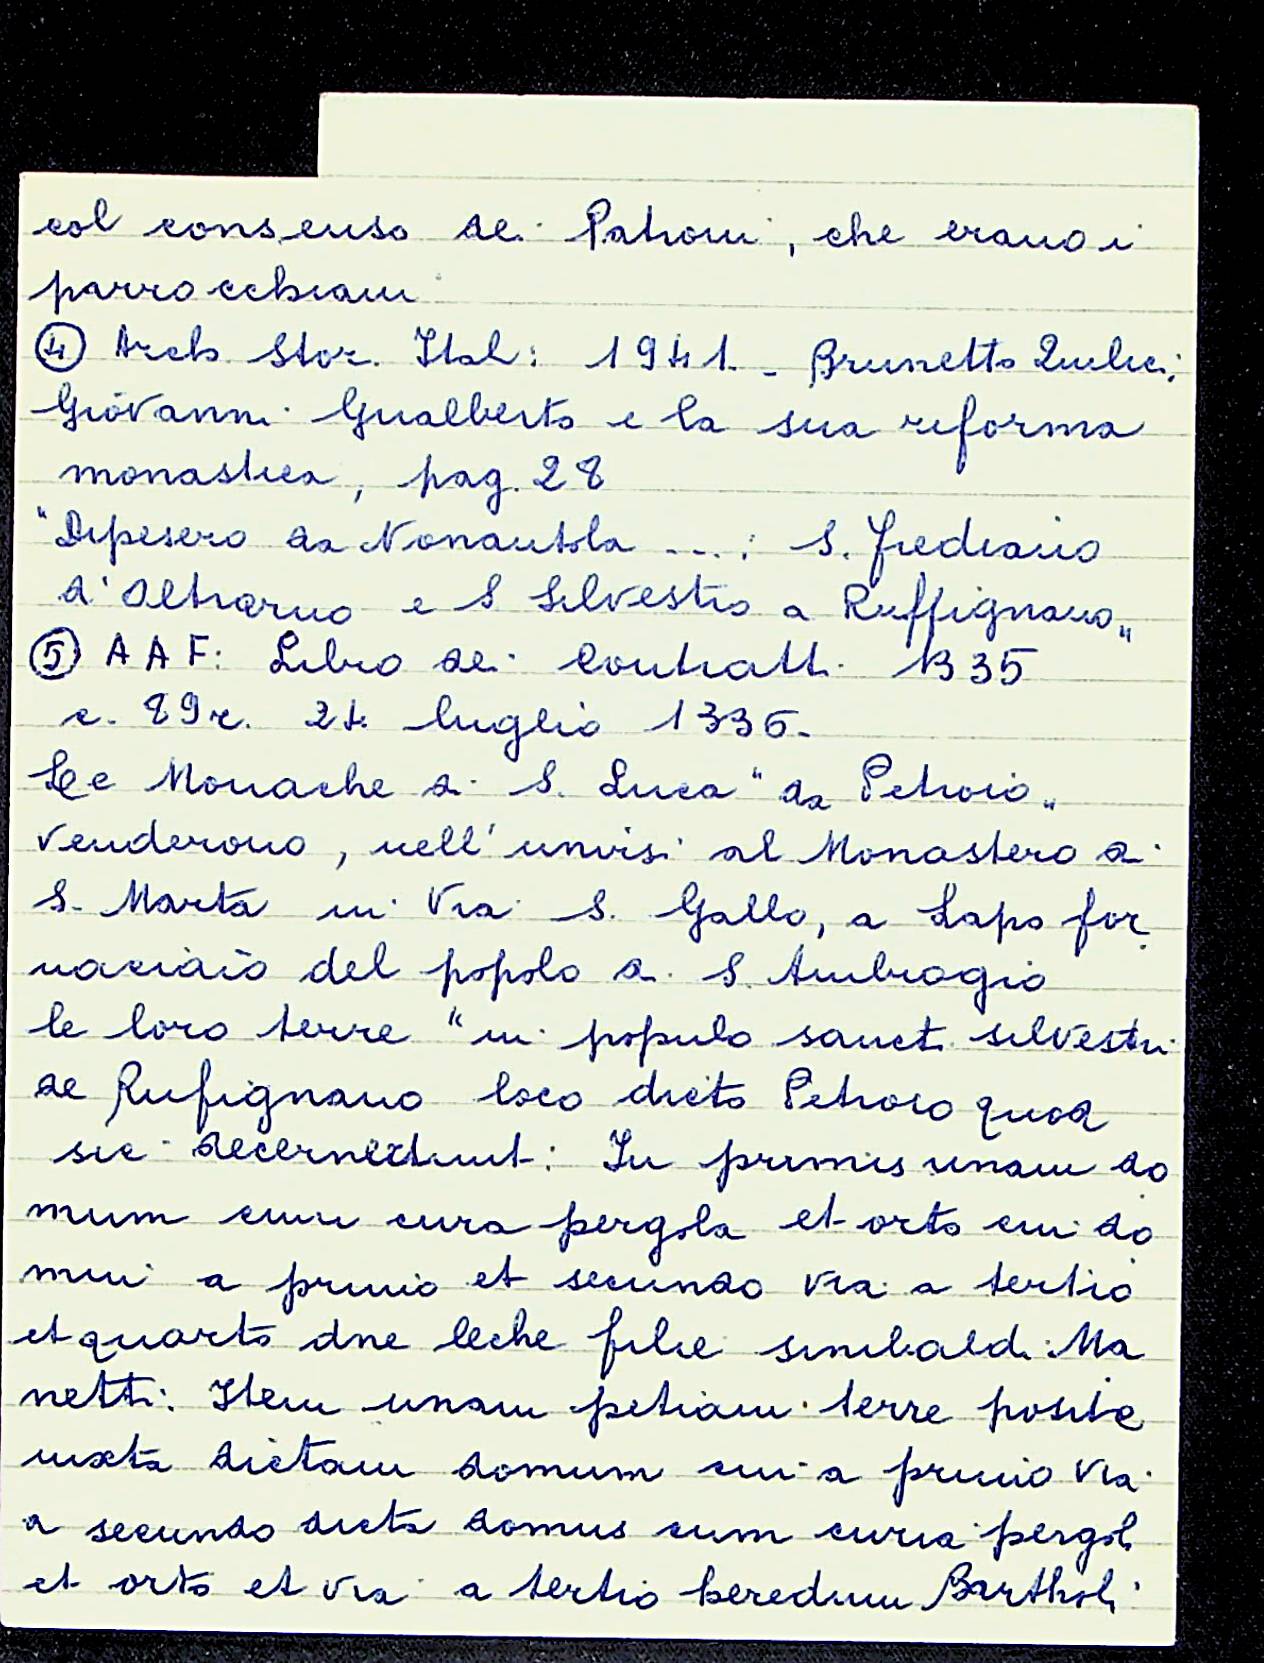 col consenso dei Patroni, che erano i
parrocchiani
④ Arch. Stor. Ital: 1941. - Brunetto Quilici,
Giovanni Gualberto e la sua riforma
monastica, pag. 28
"Dipesero da Nonantola ...: S. Frediano
d'Oltrarno e S Silvestro a Ruffignano"
⑤ AAF: Libro dei Contratti 1335
c. 89r. 24 luglio 1336.
Le Monache di S. Luca "da Petroio"
venderono, nell'univisi al Monastero di
S. Marta in Via S. Gallo, a Lapo for
naciaio del popolo di S. Ambrogio
le loro terre "in populo sancti silvestri
de Rufignano loco dicto Petroio quod
sic decernextunt: In primis unam do
mum cum cura pergola et orto cui do
mui a primo et secundo via a tertio
et quarto dne Ceche filie sinibaldi Ma
netti: Item unam petiam terre posite
iuxta dictam domum cui a primo via
a secundo dicta domus cum curia pergoli
et orto et via a tertio heredum Bartholi